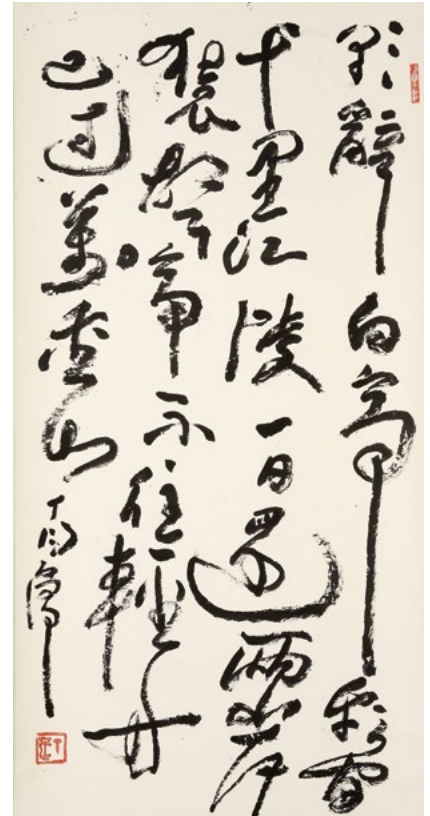 朝辭白帝彩雲間
千里江陵一日還兩岸
猿聲啼不住輕舟
已過萬重山